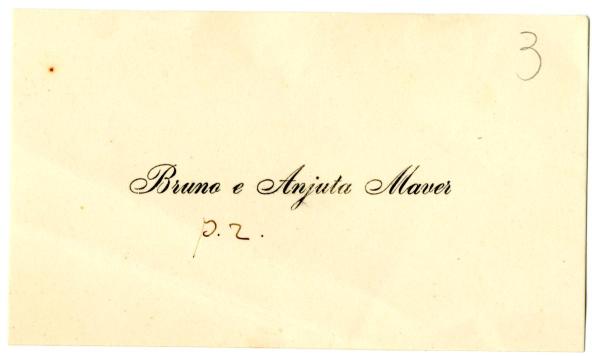 3
Bruno e Anjuta Maver
p. r.